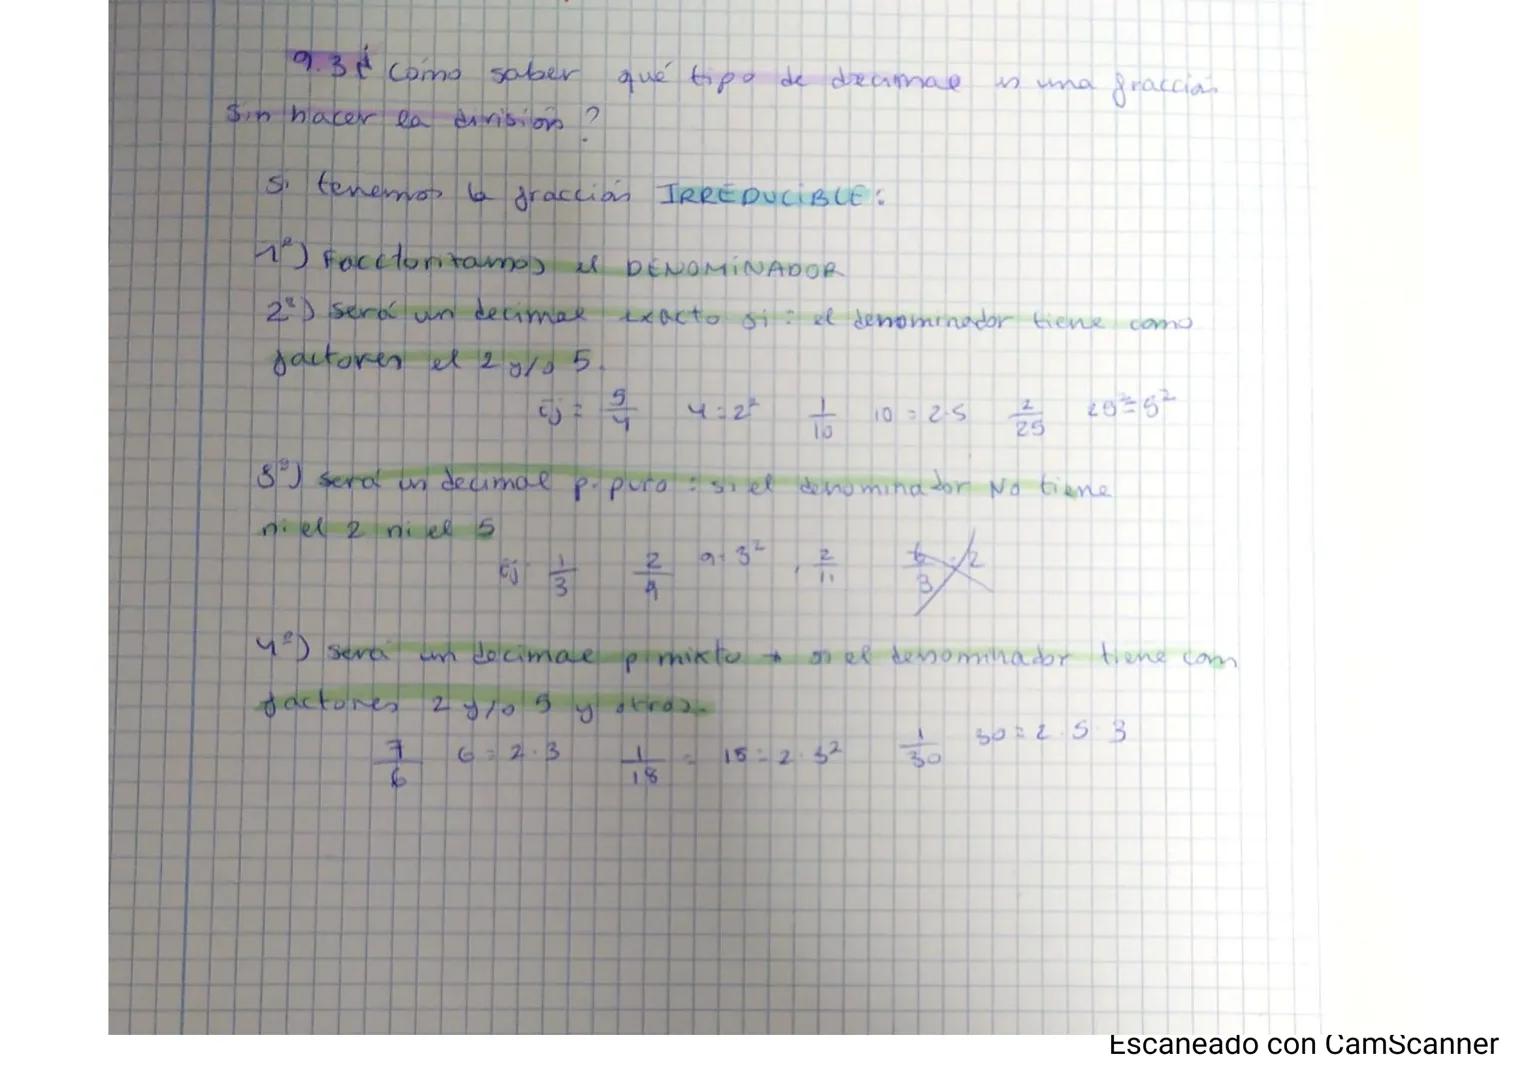 9.3 ¿Cómo saber qué tipo de decimal es una fracción
sin hacer la división?
Si tenemos la fracción IRREDUCIBLE:
1º) Facctorizamos el DENOMINADOR
2º) será un decimal exacto si: el denominador tiene como
factores el 2 y/o 5.
Ej = 5/4 4=2² 1/10 10=2·5 2/25 25=5²
3º) será un decimal p. puro: si el denominador No tiene
ni el 2 ni el 5
Ej 1/3 2/9 9=3², 2/11 6/3 = 2
4º) será un decimal p mixto → si el denominador tiene com
factores 2 y/o 5 y otros.
7/6 6=2·3 1/18 = 18=2·3² 1/30 30=2·5·3
Escaneado con CamScanner